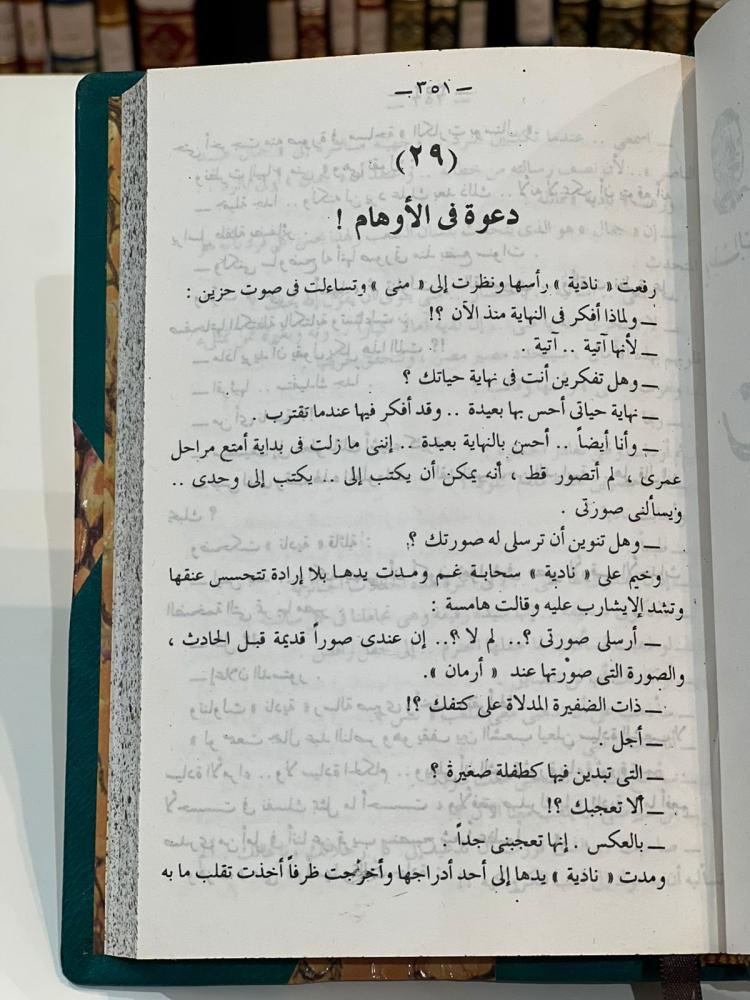 — ٣٥١ —
(٢٩)
دعوة فى الأوهام !
رفعت « نادية » رأسها ونظرت إلى « منى » وتساءلت فى صوت حزين :
— ولماذا أفكر فى النهاية منذ الآن ؟!
— لأنها آتية .. آتية .
— وهل تفكرين أنت فى نهاية حياتك ؟
— نهاية حياتى أحس بها بعيدة .. وقد أفكر فيها عندما تقترب .
— وأنا أيضاً .. أحسن بالنهاية بعيدة .. إننى ما زلت فى بداية أمتع مراحل
عمرى ، لم أتصور قط ، أنه يمكن أن يكتب إلى .. يكتب إلى وحدى ..
ويسألنى صورتى .
— وهل تنوين أن ترسلى له صورتك ؟
وخيم على « نادية » سحابة غم ومدت يدها بلا إرادة تتحسس عنقها
وتشد الإيشارب عليه وقالت هامسة :
— أرسلى صورتى ؟.. لم لا ؟.. إن عندى صوراً قديمة قبل الحادث ،
والصورة التى صوّرتها عند « أرمان ».
— ذات الضفيرة المدلاة على كتفك ؟!
— أجل .
— التى تبدين فيها كطفلة صغيرة ؟
— ألا تعجبك ؟!
— بالعكس . إنها تعجبنى جداً .
ومدت « نادية » يدها إلى أحد أدراجها وأخرجت ظرفاً أخذت تقلب ما به